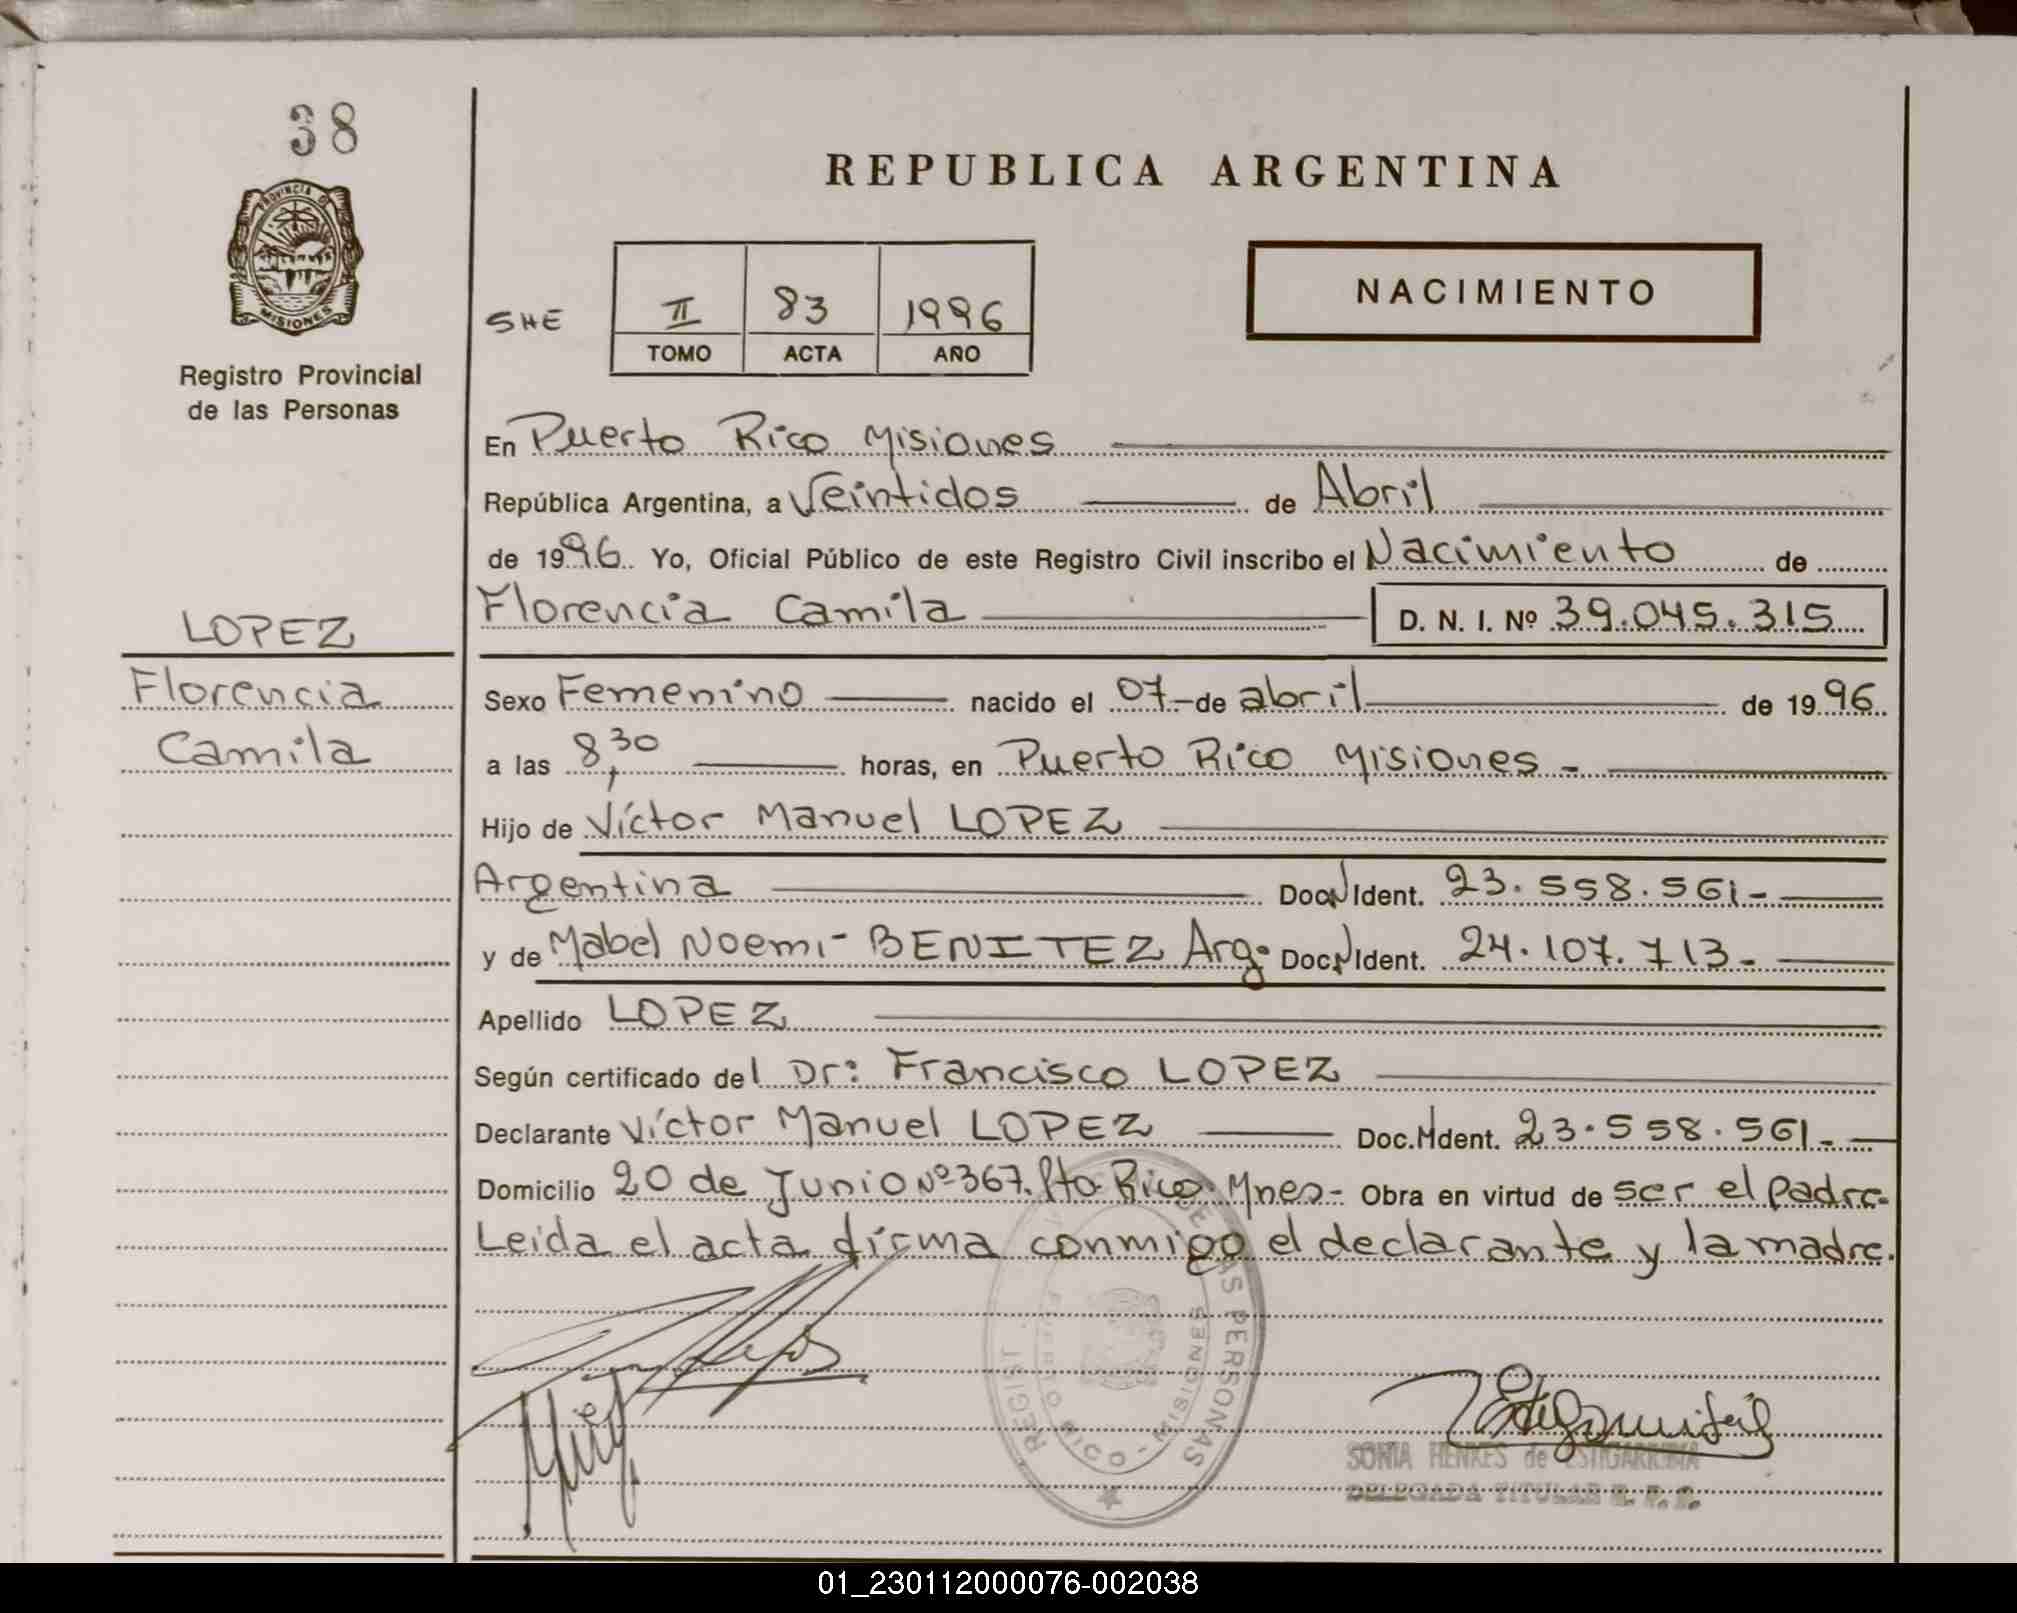 38
PROVINCIA DE
MISIONES
Registro Provincial
de las Personas
LOPEZ
Florencia
Camila
REPUBLICA ARGENTINA
SHE
II 83 1996
TOMO ACTA AÑO
NACIMIENTO
En Puerto Rico Misiones
República Argentina, a Veintidos de Abril
de 1996. Yo, Oficial Público de este Registro Civil inscribo el Nacimiento de
Florencia Camila D. N. I. Nº 39.045.315
Sexo Femenino nacido el 07-de abril de 1996
a las 8,30 horas, en Puerto Rico Misiones -
Hijo de Víctor Manuel LOPEZ
Argentina Doc.N Ident. 23.558.561-
y de Mabel Noemi- BENITEZ Arg. Doc.N Ident. 24.107.713-
Apellido LOPEZ
Según certificado del Dr: Francisco LOPEZ
Declarante Víctor Manuel LOPEZ Doc. Ident. 23.558.561-
Domicilio 20 de Junio Nº 367. Pto. Rico. Mnes- Obra en virtud de ser el padre-
Leida el acta firma conmigo el declarante y la madre.
REGIST. DE LAS PERSONAS
PUERTO RICO - MISIONES
SONIA HENKES de ESTIGARRIBIA
DELEGADA TITULAR R. P. P.
01_230112000076-002038